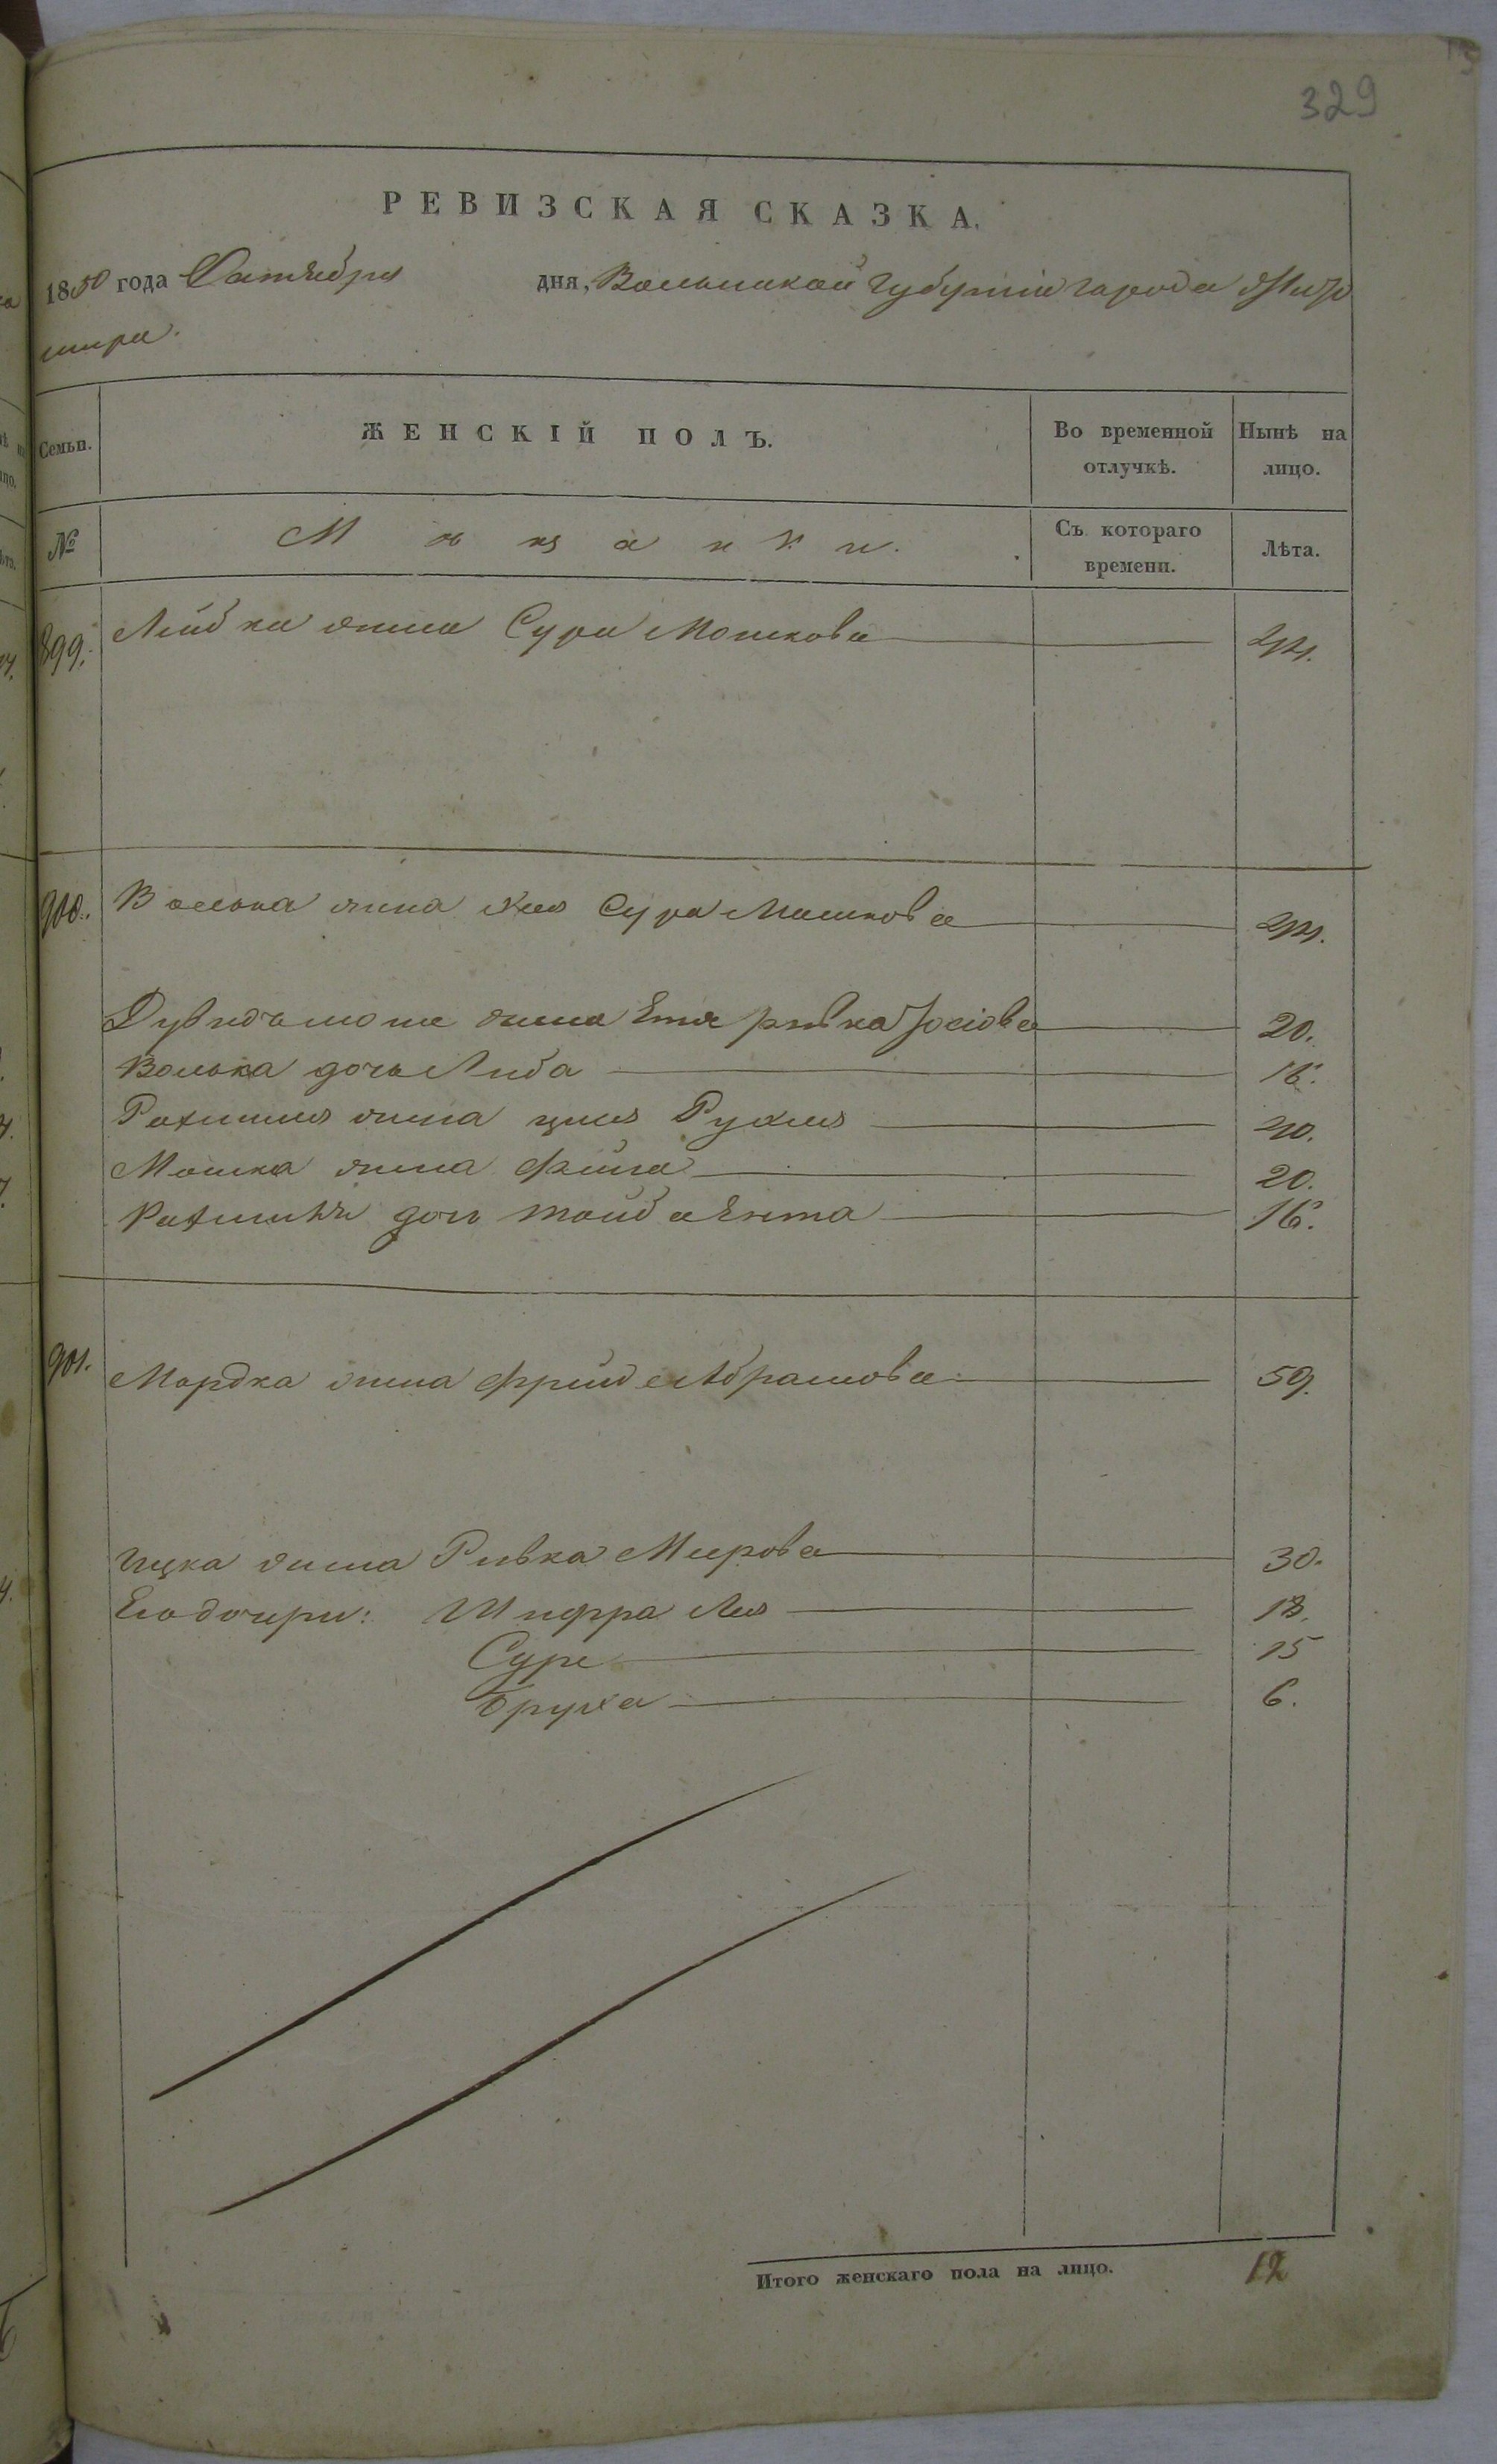 329
РЕВИЗСКАЯ СКАЗКА.
1850 года Октября дня, Волынской губернiи города Жито
мира.
Семьи. ЖЕНСКIЙ ПОЛЪ. Во временной отлучкѣ. Нынѣ на лицо.
№ Мѣщанки. Съ котораго времени. Лѣта.
899. Лейбка жена Сура Мошкова
900. Волька жена Хая Сура Мошкова
жена Етя Ривка Iосiова 20.
Волька дочь Либа 16.
жена Рухля 40.
Мошка жена Фейга 20.
дочь Тойба Ента 16.
901. Мордка жена Фрейде Абрамова 59.
Ицка жена Ривка Меерова 30.
Его дочери: Шифра Лея 18.
Суре 15
Бруха 6.
Итого женскаго пола на лицо. 12